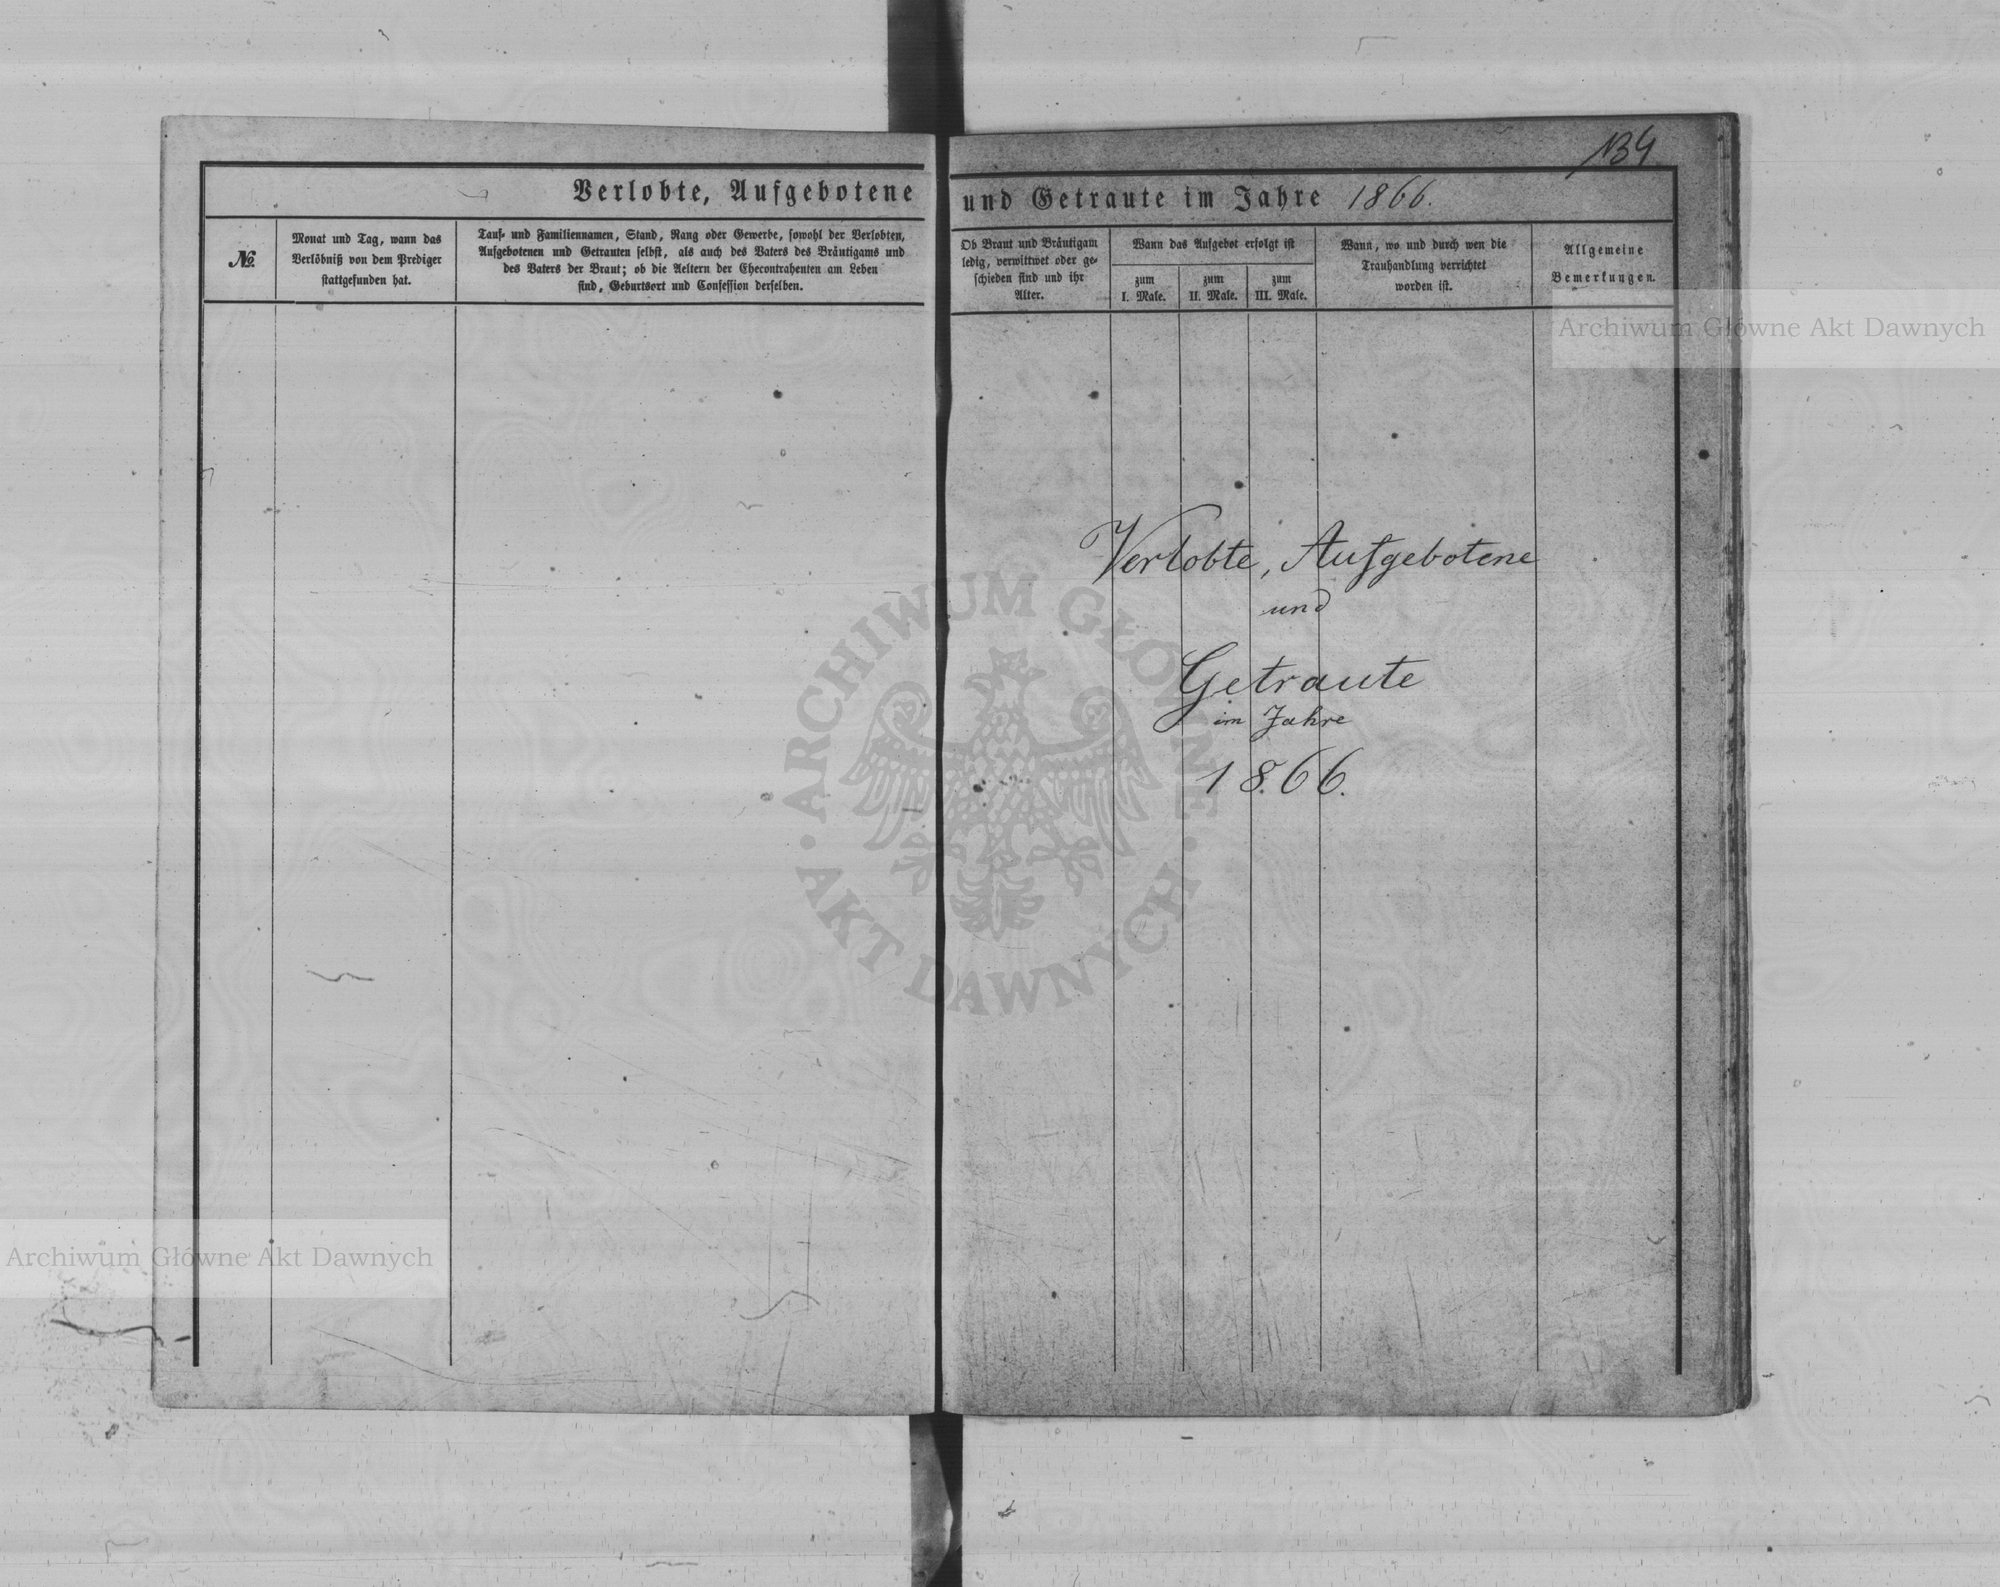 134
Verlobte, Aufgebotene und Getraute im Jahre 1866.
№.
Monat und Tag, wann das
Verlöbniß von dem Prediger
stattgefunden hat.
Tauf- und Familiennamen, Stand, Rang oder Gewerbe, sowohl der Verlobten,
Aufgebotenen und Getrauten selbst, als auch des Vaters des Bräutigams und
des Vaters der Braut; ob die Aeltern der Ehecontrahenten am Leben
sind, Geburtsort und Confession derselben.
Ob Braut und Bräutigam
ledig, verwittwet oder ge-
schieden sind und ihr
Alter.
Wann das Aufgebot erfolgt ist
zum
I. Male.
zum
II. Male.
zum
III. Male.
Wann, wo und durch wen die
Trauhandlung verrichtet
worden ist.
Allgemeine
Bemerkungen.
Verlobte, Aufgebotene
und
Getraute
im Jahre
1866.
ARCHIWUM GŁÓWNE AKT DAWNYCH
Archiwum Główne Akt Dawnych
Archiwum Główne Akt Dawnych